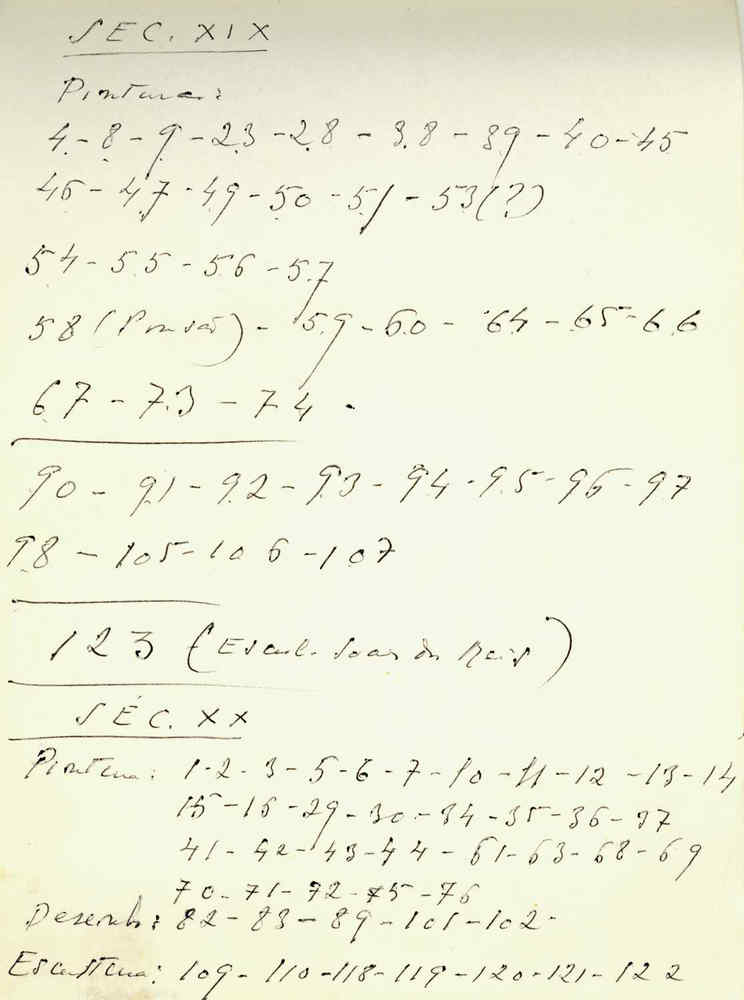 SEC. XIX
Pintura:
4 - 8 - 9 - 23 - 28 - 38 - 39 - 40 - 45
46 - 47 - 49 - 50 - 51 - 53 (?)
54 - 55 - 56 - 57
58 (Pousão) - 59 - 60 - 64 - 65 - 66
67 - 73 - 74 -
90 - 91 - 92 - 93 - 94 - 95 - 96 - 97
98 - 105 - 106 - 107
123 (Escul. Soares dos Reis)
SÉC. XX
Pintura: 1 - 2 - 3 - 5 - 6 - 7 - 10 - 11 - 12 - 13 - 14
15 - 16 - 29 - 30 - 34 - 35 - 36 - 37
41 - 42 - 43 - 44 - 61 - 63 - 68 - 69
70 - 71 - 72 - 75 - 76
Desenho: 82 - 83 - 89 - 101 - 102 -
Escultura: 109 - 110 - 118 - 119 - 120 - 121 - 122